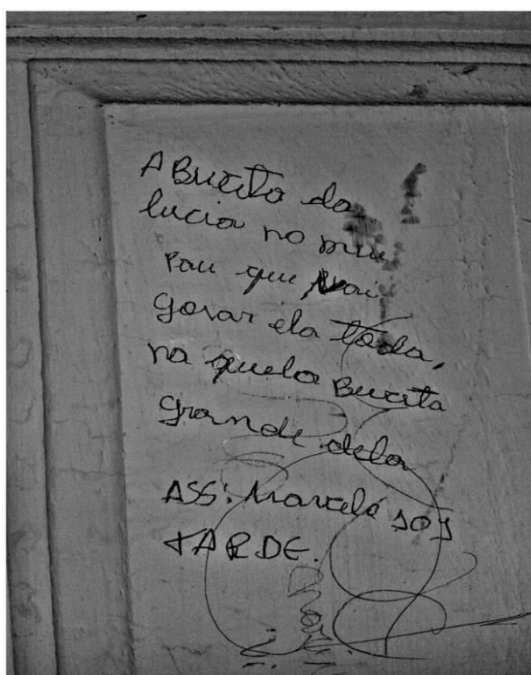 A Buceta da
lucia no meu
Pau que vai
gosar ela toda,
na quela Buceta
grande dela
ASS: Marcelo
TARDE.